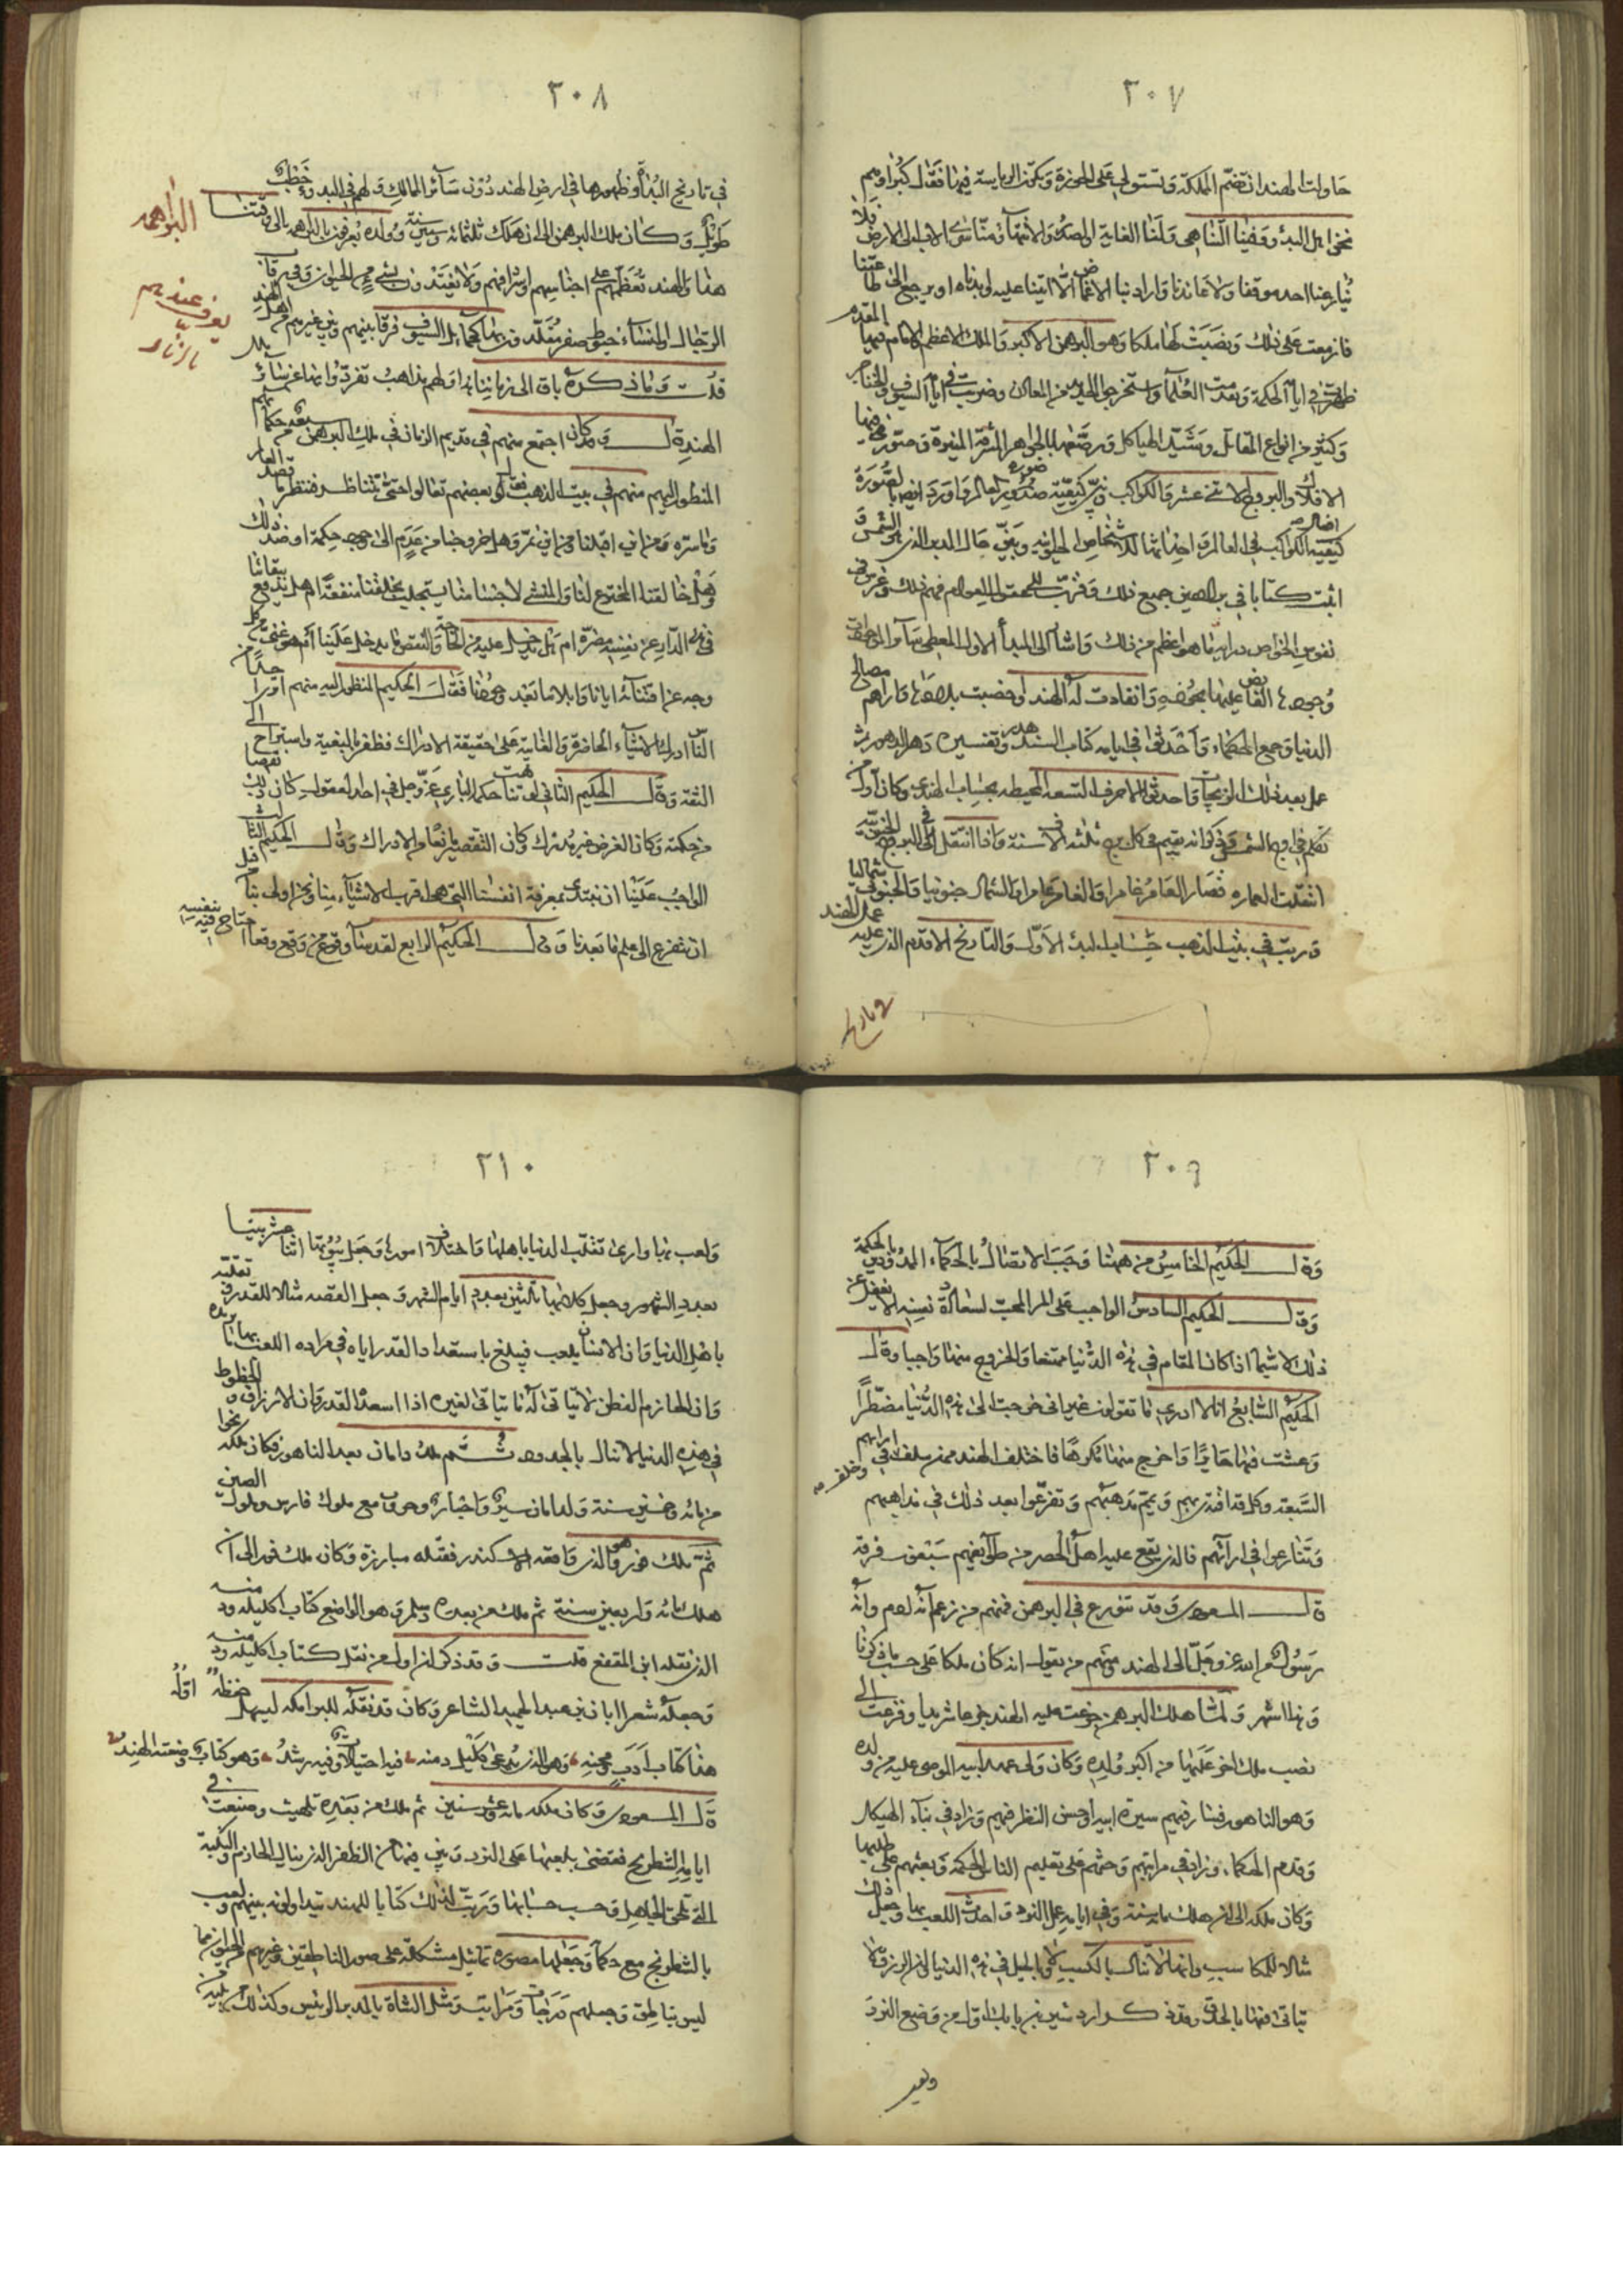 ٢٠٧
حاولت الهند ان تضم المملكة وتستولي على الحوزة وتكون الرياسة فيها فقال كبراؤهم
نحن اهل البدؤ وفينا التناهي ولنا الغاية والصدر والانتهاء ومنا سرى الاب الى الارض فلا
احد موقفا ولا عاندنا واراد بنا الاغماض الا اتينا عليه او يرجع الى طاعتنا
فازمعت على ذلك ونصبت لها ملكا وهو البرهمن الاكبر والملك الاعظم والامام فيها المقدم
ظهرت في ايامه الحكمة وتقدمت العلماء واستخرجوا الحديد من المعادن وضربت في ايامه السيوف والخناجر
وكثير من انواع المقاتل وشيد الهياكل ورصعها بالجواهر المشرقة المنيرة وصور فيها
الافلاك والبروج الاثني عشر والكواكب وبين كيفية صورة العالم واورد ايضا بالصورة
كيفية الكواكب في العالم واحداثها للاشخاص الحيوانية وبين حال المدبر الذي هو الشمس
اثبت كتابا في براهين جميع ذلك وقرب الى عقول العوام فهم ذلك وغرس في
نفوس الخواص دراية ما هو اعظم من ذلك واشار الى المبدأ الاول المعطي سائر الموجودات
وجودها الفائض عليها بجوده وانقادت له الهند واخصبت بلادها واراهم مصالح
الدنيا وجمع الحكماء واحدثوا في ايامه كتاب السند هند وتفسيره دهر الدهور ثم
عمل بعد ذلك الزيجات واحدثوا الاحرف التسعة المحيطة بحساب الهندي وكان اول من
تكلم في اوج الشمس وذكر انه يقيم في كل برج ثلثة الاف سنة واذا انتقل الى البروج الجنوبية
انتقلت العمارة فصار العامر غامرا والغامر عامرا والشمال جنوبيا والجنوب شماليا
ورتب في بيت الذهب حساب البدؤ الاول والتاريخ الاقدم الذي عليه عمل الهند
في تاريخ
٢٠٨
في تاريخ البدأ وظهورها في ارض الهند دون سائر الممالك ولهم في البدؤ خطب
طويل وكان ملك البرهمن الى ان هلك ثلثمائة وستين سنة وولده يعرفون بالبراهمة الى وقتنا
هذا والهند تعظمهم وهم على اجناسهم واشرافهم ولا يغتذون بشئ من الحيوان وفي رقاب
الرجال والنساء خيوط صفر متقلدون بها كحمائل السيوف فرقا بينهم وبين غيرهم من اهل الهند
البراهمه
يعرف عندهم بالزنار
قلت وما ذكره باق الى زماننا هذا ولهم مذاهب تفردوا بها عن سائر ملل
الهند قال وقد كان اجتمع منهم في قديم الزمان في ملك البرهمن سبعة من حكمائهم
المنظور اليهم منهم في بيت الذهب فقال بعضهم تعالوا حتى نتناظر فننظر ما قصة العالم
وما سره ومن اين اقبلنا والى اين نمر وهل خروجنا من عدم الى وجود حكمة او ضد ذلك
وهل خالقنا المخترع لنا والمنشئ لاجسامنا يستجلب بخلقنا منفعة ام هل يدفع بفنائنا
في هذه الدار عن نفسه مضرة ام هل يدخل عليه من الحاجة والنقص ما يدخل علينا ام هو غني من كل
وجه عن افنائه ايانا وابلانا بعد وجودنا فقال الحكيم المنظور اليه منهم
اترى احدا من الناس ادرك الاشياء الحاضرة والغايبة على حقيقة الادراك فظفر بالبغية واستراح الى
الثقة وقال الحكيم الثاني لو تناهت حكمة الباري عز وجل في احد العقول كان ذلك نقصا
من حكمته وكان الغرض غير مدرك وكان التقصير مانعا من الادراك وقال الحكيم الثالث
الواجب علينا ان نبتدئ بمعرفة انفسنا التي هي اقرب الاشياء منا ونحن اولى بها قبل
ان نتفرغ الى علم ما بعد منا وقال الحكيم الرابع لقد ساء وقوع من وقع موقعا احتاج فيه الى نفسه
٢٠٩
وقال الحكيم الخامس من ههنا وجب الاتصال بالحكماء الممدودين بالحكمة
وقال الحكيم السادس الواجب على المرء المحب لسعادة نفسه الا يغفل عن
ذلك لا سيما اذا كان المقام في هذه الدنيا ممتنعا والخروج منها واجبا وقال
الحكيم السابع انا لا ادري ما تقولون غير اني خرجت الى هذه الدنيا مضطرا
وعشت فيها حائرا واخرج منها مكرها فاختلف الهند ممن سلف وخلف في اراء هولاء
السبعة وكل قد اقتدى بهم ويمم مذهبهم وتفرعوا بعد ذلك في مذاهبهم
وتنازعوا في ارائهم فالذي يقع عليه اهل الحصر من طوائفهم سبعون فرقة
قال المسعودي وقد تنوزع في البرهمن فمنهم من زعم انه ادم وانه
رسول من الله عز وجل الى الهند ومنهم من يقول انه كان ملكا على حسب ما ذكرنا
وهذا اشهر ولما هلك البرهمن جزعت عليه الهند جزعا شديدا وفزعت الى
نصب ملك اخر عليها من اكبر ولده وكان ولي عهد ابيه الموصى عليه من ولده
وهو الناهود فسار فيهم سيرة ابيه واحسن النظر فيهم وزاد في بناء الهياكل
وقدم الحكماء وزاد في مراتبهم وحثهم على تعليم الناس الحكمة وبعثهم على طلبها
وكان ملكه الى ان هلك مائة سنة وفي ايامه عمل النرد واحدث اللعب بها وجعل ذلك
مثالا للمكاسب وانها لا تنال بالكسب ولا بالحيل في هذه الدنيا وان الرزق لا
يتاتى فيها بالحذق وقد ذكر ان اردشير بن بابك اول من وضع النرد
ولعب
٢١٠
ولعب بها وارى تقلب الدنيا باهلها واختلاف امورها وجعل بيوتها اثنا عشر بيتا
بعدد الشهور وجعل كلابها ثلثين بعدد ايام الشهر وجعل الفصين مثالا للقدر وتقلبه
باهل الدنيا وان الانسان يلعب فيبلغ باسعاد القدر اياه في مراده اللعب بها ما يريده
وان الحازم الفطن لا يتاتى له ما يتاتى لغيره اذا اسعده القدر وان الارزاق والحظوظ
في هذه الدنيا لا تنال بالجدود ثم ملك دامان بعد الناهود فكان ملكه نحوا
من مائة وخمسين سنة ولدامان سير واخبار وحروب مع ملوك فارس وملوك الصين
ثم ملك فور وهو الذي واقعه الاسكندر فقتله مبارزة وكان ملك فور الى ان
هلك مائة واربعين سنة ثم ملك من بعده دبسلم وهو الواضع كتاب كليله ودمنه
الذي نقله ابن المقفع قلت وقد ذكر ان اول من نقل كتاب كليله ودمنه
وجعله شعرا ابان بن عبد الحميد الشاعر وكان قد نقله للبرامكه ليسهل حفظه اوله
هذا كتاب ادب ومحنه وهو الذي يدعى كليل دمنه فيه احتيالات وفيه رشد وهو كتاب وضعته الهند
قال المسعودي وكان ملكه مائة وعشر سنين ثم ملك من بعده بلهيت وصنعت في
ايامه الشطرنج فقضى بلعبها على النرد وبين فيها من الظفر الذي يناله الحازم والبلية
التي تلحق الجاهل وحسب حسابها ورتب لذلك كتابا للهند يتداولونه بينهم ولعب
بالشطرنج مع حكمائه وجعلها مصورة تماثيل مشكلة على صور الناطقين وغيرهم من الحيوان مما
ليس بناطق وجعلهم درجات ومراتب ومثل الشاه بالمدبر الرئيس وكذلك من يليه